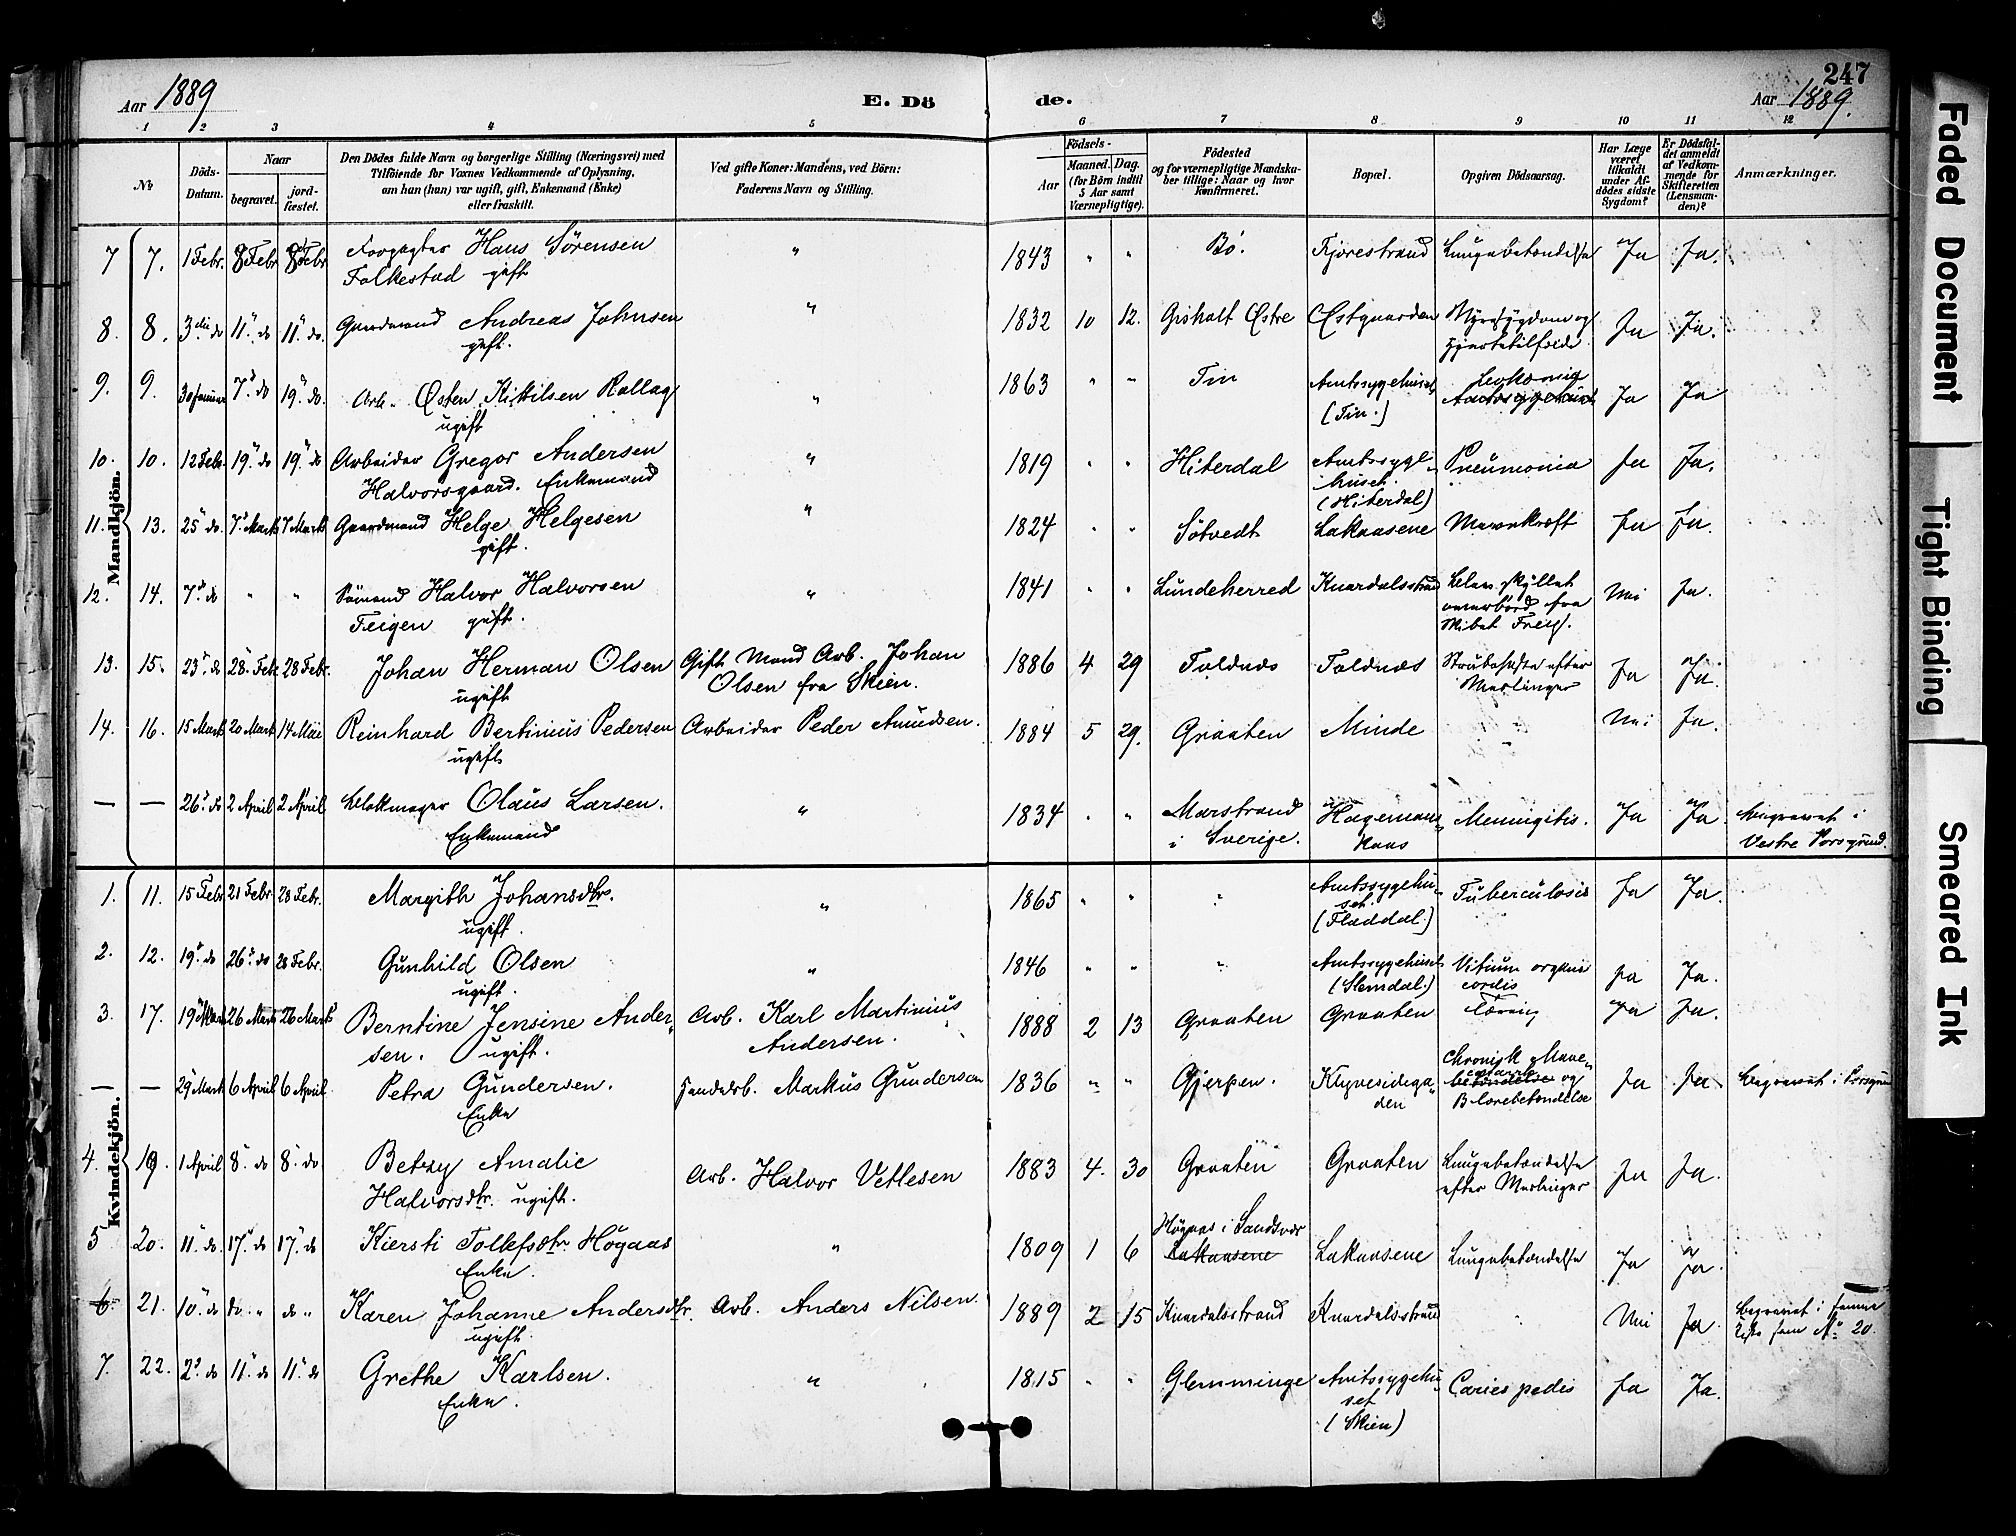 247
Aar 1889
E. Dö
de.
Aar 1889.
1 2 3 4 5 6 7 8 9 10 11 12
No
Döds-
Datum.
Naar
begravet.
jord-
fæstet.
Den Dödes fulde Navn og borgerlige Stilling (Næringsvei) med
Tilföiende for Voxnes Vedkommende af Oplysning,
om han (hun) var ugift, gift, Enkemand (Enke)
eller fraskilt.
Ved gifte Koner: Mandens, ved Börn:
Faderens Navn og Stilling.
Födsels-
Aar
Maaned.
Dag.
(for Börn indtil
5 Aar samt
Værnepligtige).
Födested
og for værnepligtige Mandska-
ber tillige: Naar og hvor
konfirmeret.
Bopæl.
Opgiven Dödsaarsag.
Har Læge
været
tilkaldt
under Af-
dödes sidste
Sygdom?
Er Dödsfal-
det anmeldt
af Vedkom-
mende for
Skifteretten
(Lensman-
den)?
Anmærkninger.
Mandkjön.
7 7. 1 Febr. 8 Febr 8 Febr Forpagter Hans Sörensen " 1843 " " Bö. Fjærestrand Lungebetændelse Ja Ja.
Folkestad gift
8. 8. 3die do 11" do 11" do. Gaardmand Andreas Johnsen " 1832 10 12. Gisholt Østre Østgaarden Nyresygdom og Ja Ja.
gift. Hjertetilfælde
9. 9. 30 Januar 7" do 19" do. Arb. Østen Kittilsen Rollag " 1863 " " Tin Amtssygehuset Ja Ja
ugift (Tin.)
10. 10. 12 Febr. 19" do 19" do Arbeider Gregor Andersen " 1819 " " Hiterdal Amtssyge- Pneumonia Ja Ja.
Halvorsgaard. Enkemand huset.
(Hiterdal)
11. 13. 25" do. 7" Marts 7 Marts Gaardmand Helge Helgesen " 1824 " " Sötvedt Lakaasene Mavekræft Ja Ja.
gift.
12. 14. 7" do " " Sömand Halvor Halvorsen " 1841 " " Lundeherred Knardalsstrand Blev skyllet Nei Ja.
Teigen gift. overbord fra
Skibet Freij.
13. 15. 23" do 28" Feb. 28 Febr. Johan Herman Olsen Gift Mand Arb. Johan 1886 4 29 Toldnæs Toldnæs Strubehoste efter Ja Ja.
ugift Olsen fra Skien. Meslinger
14. 16. 15 Marts 20 Marts 14 Mai Reinhard Bertinius Pedersen Arbeider Peder Amundsen. 1884 5 29. Graaten Minde " Nei Ja.
ugift
— — 26" do 2 April 2 April Blokmager Olaus Larsen. " 1834 " " Marstrand Hagemans Meningitis. Ja Ja Begravet i
Enkemand i Sverige. Haas Vestre Porsgrund.
Kvindekjön.
1. 11. 15 Febr 21 Febr. 28 Febr. Margith Johansdtr. " 1865 " " " Amtssygehu- Tuberculosis Ja Ja.
ugift. set.
(Fladdal.)
2. 12. 19" do 26" do 28 Febr. Gunhild Olsen " 1846 " " " Amtssygehuset Vitium organic Ja Ja.
ugift. (Slemdal.) cordis
3. 17. 19" Marts 26 Marts 26 Marts Berntine Jensine Ander- Arb. Karl Martinius 1888 2 13 Graaten Graaten Tæring Ja Ja.
sen. ugift. Andersen.
— — 29" Marts 6 April 6 April Petra Gundersen. Jendarb. Markus Gundersen 1836 " " Gjerpen. Klyvesidega- Chronisk Mave- Ja Ja Begravet i Porsgrund
Enke den catarrh betændelse og
Blærebetændelse
4. 19. 1 April 8" do 8" do Betzy Amalie Arb. Halvor Vetlesen 1883 4. 30 Graaten Graaten Lungebetændelse Ja Ja.
Halvorsdtr. ugift. efter Meslinger
5 20. 11" do. 17" do 17" do Kiersti Tollefsdtr Högaas " 1809 1 6 Högaas i Sandsvær Lakaasene Lungebetændelse Ja Ja.
Enke. Lakaasene
6. 21. 10" do do " do " Karen Johanne Andersdtr. Arb. Anders Nilsen. 1889 2 15 Knardalsstrand Knardalsstrand " Nei Ja. Begravet i samme
ugift. Kiste som No 20.
7. 22. 2" do 11" do 11" do Grethe Karlsen. " 1815 " " Glemminge Amtssygehu- Caries pedis Ja Ja.
Enke. set
(Skien)
Faded Document
Tight Binding
Smeared Ink